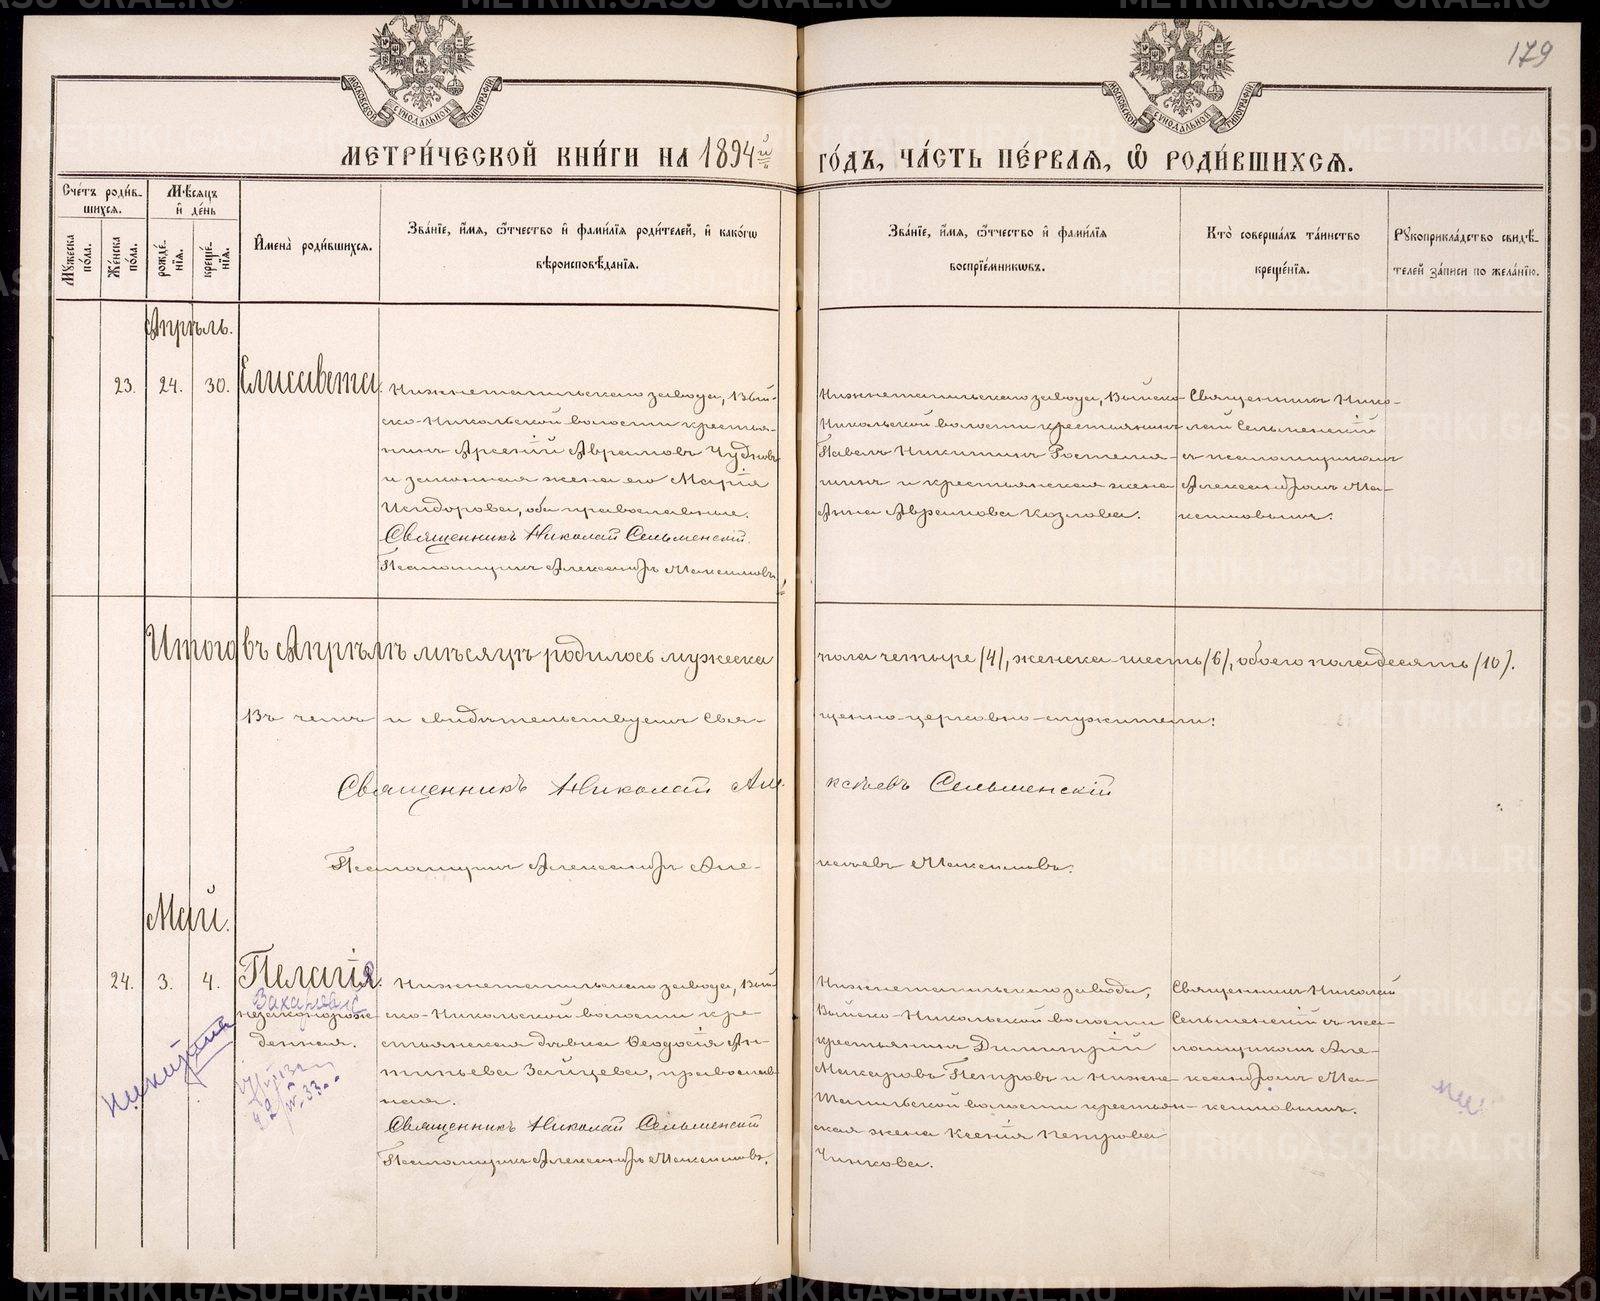 179
МОСКОВСКОЙ СѴНОДАЛЬНОЙ ТИПОГРАФІИ
МОСКОВСКОЙ СѴНОДАЛЬНОЙ ТИПОГРАФІИ
МЕТРИ́ЧЕСКОЙ КНИ́ГИ НА 1894й ГО́ДЪ, ЧА́СТЬ ПЕ́РВАЯ, Ѡ҆ РОДИ́ВШИХСЯ.
Сче́тъ роди́в-
шихся.
Мѣ́сяцъ
и҆ де́нь
Му́жеска
по́ла.
Же́нска
по́ла.
рожде́-
нія.
креще́-
нія.
И҆мена̀ роди́вшихся.
Зва́ніе, и҆́мя, ѻ҆́тчество и҆ фами́лія роди́телей, и҆ како́гѡ
вѣроисповѣ́данія.
Зва́ніе, и҆́мя, ѻ҆́тчество и҆ фами́лія
воспріе́мникѡвъ.
Кто̀ соверша́лъ та́инство
креще́нія.
Рꙋкоприкла́дство свидѣ́-
телей за́писи по жела́нію.
Апрѣль.
23.
24.
30.
Елисавета.
Нижнетагильскаго завода, Вый-
ско-Никольской волости крестья-
нинъ Арсеній Аврамовъ Чудновъ
и законная жена его Марія
Исидорова, оба православные.
Священникъ Николай Сельменскій.
Псаломщикъ Александръ Максимовъ.
Нижнетагильскаго завода, Выйско-
Никольской волости крестьянинъ
Павелъ Никитинъ
и крестьянская жена
Анна Аврамова Козлова.
Священникъ Нико-
лай Сельменскій
съ псаломщикомъ
Александромъ Ма-
ксимовымъ.
Итого въ Апрѣлѣ мѣсяцѣ родилось мужеска пола четыре (4), женска-шесть (6), обоего пола десять (10).
Въ чемъ и свидѣтельствуемъ свя-
щенно-церковно-служители:
Священникъ Николай Але-
ксѣевъ Сельменскій
Псаломщикъ Александръ Але-
ксѣевъ Максимовъ.
Май.
24.
3.
4.
Пелагія.
незаконорож-
денная.
Нижнетагильскаго завода, Вый-
ско-Никольской волости кре-
стьянская дѣвка Ѳеодосія Ан-
типьева Зайцева, православ-
ная.
Священникъ Николай Сельменскій
Псаломщикъ Александръ Максимовъ.
Нижнетагильскаго завода,
Выйско-Никольской волости
крестьянинъ Димитрій
Макаровъ Петровъ и Нижне-
Тагильской волости крестьян-
ская жена Ксенія Петрова
Священникъ Николай
Сельменскій съ пса-
ломщикомъ Але-
ксандромъ Ма-
ксимовымъ.
METRIKI.GASO-URAL.RU